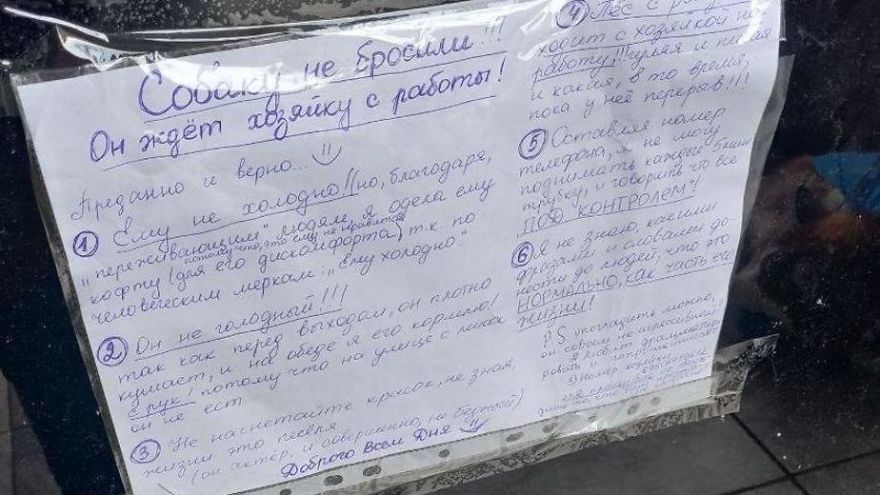 Собаку не бросили!!!
Он ждёт хозяйку с работы!
Преданно и верно...
① Ему не холодно!! но, благодаря,
"переживающим" людям, я одела ему
потому что, это ему не нравится
кофту (для его дискомфорта) т.к. по
человеческим меркам: "Ему холодно."
② Он не голодный!!!
так как перед выходом, он плотно
кушает, и на обеде я его кормлю!
с рук! потому что на улице с миски
он не ест
③ Не нагнетайте красок, не зная,
жизни это пёселя
(он актёр, и совершенно, не бедный)
Доброго Всем Дня
④ Пёс с
ходит с хозяйкой на
работу!!! гуляя и писая
и какая, в то время,
пока у неё перерыв!!!
⑤ Оставляя номер
телефона, я не могу
поднимать каждой 5 мин
трубку, и говорить что все
"ПОД КОНТРОЛЕМ"!
⑥ Я не знаю, какими
фразами и словами до-
нести до людей, что это
НОРМАЛЬНО, как часть его
жизни!
P.S. угостить можно,
он совсем не агрессивный